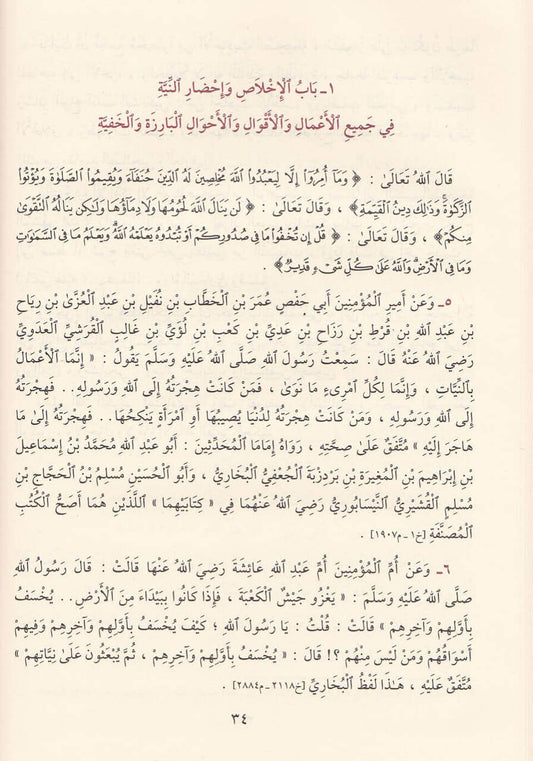 ١ـ بَابُ ٱلْإِخْلَاصِ وَإِحْضَارِ ٱلنِّيَّةِ
فِي جَمِيعِ ٱلْأَعْمَالِ وَٱلْأَقْوَالِ وَٱلْأَحْوَالِ ٱلْبَارِزَةِ وَٱلْخَفِيَّةِ
قَالَ ٱللهُ تَعَالَىٰ : ﴿ وَمَآ أُمِرُوٓا۟ إِلَّا لِيَعْبُدُوا۟ ٱللَّهَ مُخْلِصِينَ لَهُ ٱلدِّينَ حُنَفَآءَ وَيُقِيمُوا۟ ٱلصَّلَوٰةَ وَيُؤْتُوا۟
ٱلزَّكَوٰةَ ۚ وَذَٰلِكَ دِينُ ٱلْقَيِّمَةِ﴾ ، وَقَالَ تَعَالَىٰ : ﴿ لَن يَنَالَ ٱللَّهَ لُحُومُهَا وَلَا دِمَآؤُهَا وَلَٰكِن يَنَالُهُ ٱلتَّقْوَىٰ
مِنكُمْ﴾ ، وَقَالَ تَعَالَىٰ : ﴿ قُلْ إِن تُخْفُوا۟ مَا فِى صُدُورِكُمْ أَوْ تُبْدُوهُ يَعْلَمْهُ ٱللَّهُ وَيَعْلَمُ مَا فِى ٱلسَّمَٰوَٰتِ
وَمَا فِى ٱلْأَرْضِ ۗ وَٱللَّهُ عَلَىٰ كُلِّ شَىْءٍ قَدِيرٌ﴾ .
٥ـ وَعَنْ أَمِيرِ ٱلْمُؤْمِنِينَ أَبِي حَفْصٍ عُمَرَ بْنِ ٱلْخَطَّابِ بْنِ نُفَيْلِ بْنِ عَبْدِ ٱلْعُزَّىٰ بْنِ رِيَاحِ
بْنِ عَبْدِ ٱللهِ بْنِ قُرْطِ بْنِ رَزَاحِ بْنِ عَدِيِّ بْنِ كَعْبِ بْنِ لُؤَيِّ بْنِ غَالِبٍ ٱلْقُرَشِيِّ ٱلْعَدَوِيِّ
رَضِيَ ٱللهُ عَنْهُ قَالَ : سَمِعْتُ رَسُولَ ٱللهِ صَلَّى ٱللهُ عَلَيْهِ وَسَلَّمَ يَقُولُ : « إِنَّمَا ٱلْأَعْمَالُ
بِٱلنِّيَّاتِ ، وَإِنَّمَا لِكُلِّ ٱمْرِىءٍ مَا نَوَىٰ ، فَمَنْ كَانَتْ هِجْرَتُهُ إِلَى ٱللهِ وَرَسُولِهِ .. فَهِجْرَتُهُ
إِلَى ٱللهِ وَرَسُولِهِ ، وَمَنْ كَانَتْ هِجْرَتُهُ لِدُنْيَا يُصِيبُهَا أَوِ ٱمْرَأَةٍ يَنْكِحُهَا .. فَهِجْرَتُهُ إِلَىٰ مَا
هَاجَرَ إِلَيْهِ » مُتَّفَقٌ عَلَىٰ صِحَّتِهِ ، رَوَاهُ إِمَامَا ٱلْمُحَدِّثِينَ : أَبُو عَبْدِ ٱللهِ مُحَمَّدُ بْنُ إِسْمَاعِيلَ
بْنِ إِبْرَاهِيمَ بْنِ ٱلْمُغِيرَةِ بْنِ بَرْدِزْبَهْ ٱلْجُعْفِيُّ ٱلْبُخَارِيُّ ، وَأَبُو ٱلْحُسَيْنِ مُسْلِمُ بْنُ ٱلْحَجَّاجِ بْنِ
مُسْلِمٍ ٱلْقُشَيْرِيُّ ٱلنَّيْسَابُورِيُّ رَضِيَ ٱللهُ عَنْهُمَا فِي « كِتَابَيْهِمَا » ٱللَّذَيْنِ هُمَا أَصَحُّ ٱلْكُتُبِ
ٱلْمُصَنَّفَةِ [خ١ـ م١٩٠٧] .
٦ـ وَعَنْ أُمِّ ٱلْمُؤْمِنِينَ أُمِّ عَبْدِ ٱللهِ عَائِشَةَ رَضِيَ ٱللهُ عَنْهَا قَالَتْ : قَالَ رَسُولُ ٱللهِ
صَلَّى ٱللهُ عَلَيْهِ وَسَلَّمَ : « يَغْزُو جَيْشٌ ٱلْكَعْبَةَ ، فَإِذَا كَانُوا بِبَيْدَاءَ مِنَ ٱلْأَرْضِ .. يُخْسَفُ
بِأَوَّلِهِمْ وَآخِرِهِمْ » قَالَتْ : قُلْتُ : يَا رَسُولَ ٱللهِ ؛ كَيْفَ يُخْسَفُ بِأَوَّلِهِمْ وَآخِرِهِمْ وَفِيهِمْ
أَسْوَاقُهُمْ وَمَنْ لَيْسَ مِنْهُمْ ؟! قَالَ : « يُخْسَفُ بِأَوَّلِهِمْ وَآخِرِهِمْ ، ثُمَّ يُبْعَثُونَ عَلَىٰ نِيَّاتِهِمْ »
مُتَّفَقٌ عَلَيْهِ ، هَـٰذَا لَفْظُ ٱلْبُخَارِيِّ [خ٢١١٨ـ م٢٨٨٤] .
٣٤